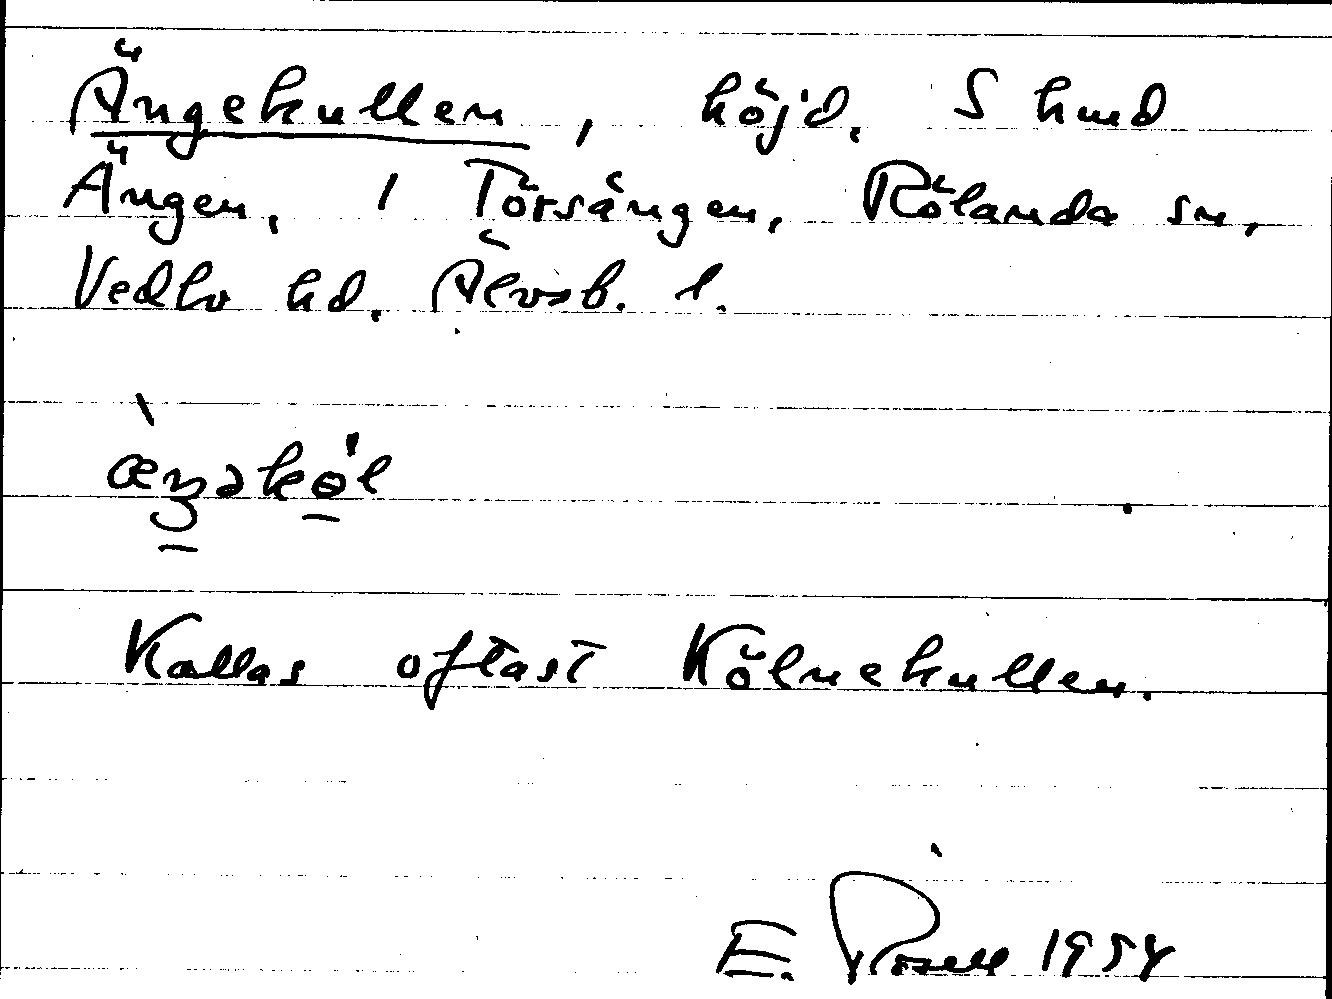 Ängekullen, höjd. S hmd
Ängen, 1 Törsängen, Rölanda sn,
Vedbo hd. Älvsb. l.
Kallas oftast Kölnekullen.
E. Rosell 1954